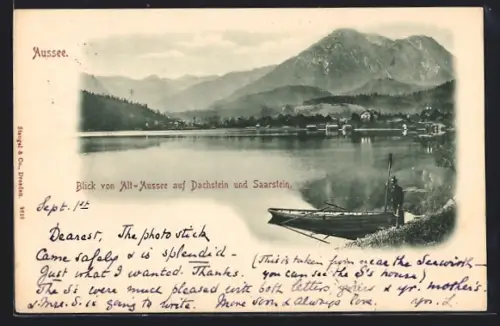 Aussee.
Blick von Alt-Aussee auf Dachstein und Saarstein.
Stengel & Co., Dresden.
Sept. 1st
Dearest, The photo stick
Came safely & is splendid -
Just what I wanted. Thanks.
(This is taken from near the Seewirth -
you can see the S's house)
The S's were much pleased with both letters, yours & yr. mother's.
& Mrs. S. is going to write. More soon & always love. Yrs. L.